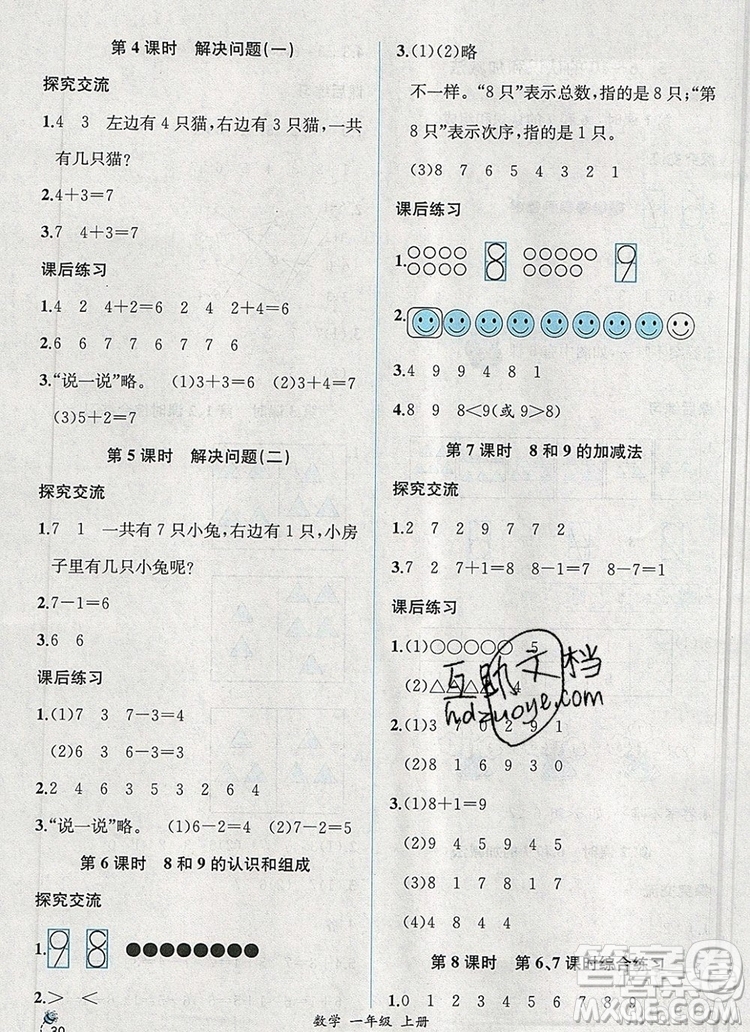 第4课时 解决问题(一)
探究交流
1.4 3 左边有4只猫,右边有3只猫,一共
有几只猫?
2.4+3=7
3.7 4+3=7
课后练习
1.4 2 4+2=6
2.6 7 6 7 7 6
3.“说一说”略。 (1)3+3=6 (2)3+4=7
(3)5+2=7
第5课时 解决问题(二)
探究交流
1.7 1 一共有7只小兔,右边有1只,小房
子里有几只小兔呢?
2.7-1=6
3.6 6
课后练习
1.(1)7 3 7-3=4
(2)6 3 6-3=3
2.2 4 6 5 3 5 3 2 6 4
3.“说一说”略。 (1)6-2=4 (2)7-2=5
第6课时 8和9的认识和组成
探究交流
1.9 8 ●●●●●●●●
2.> <
30
3.(1)(2)略
不一样。“8只”表示总数,指的是8只;“第
8只”表示次序,指的是1只。
(3)8 7 6 5 4 3 2 1
课后练习
1. 8 9
2.
3.4 9 9 4 8 1
4.8 9 8<9(或9>8)
第7课时 8和9的加减法
探究交流
1.2 7 2 9 7 7 2
3.7 7+1=8 8-1=7 8-7=1
课后练习
1.(1)○○○○○ 5
(2)△△△△ 4
2.(1)3 7 7 0 2 9 1
(2)8 1 6 9 3 0
3.(1)8+1=9
(2)9 4 9 5 9 4 5
(3)1 7 8 1 7 8 1 7
(4)4 8 4 4
第8课时 第6、7课时综合练习
1.0 1 2 3 4 5 6 7 8 9
数学 一年级 上册
互助文档
hdzuoye.com
答案圈